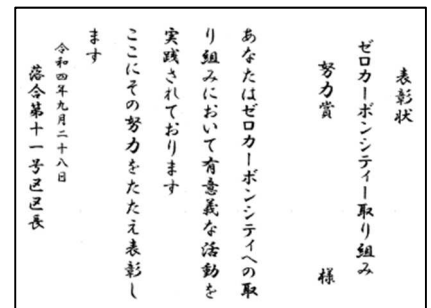 表彰状
ゼロカーボンシティー取り組み
努力賞
様
あなたはゼロカーボンシティへの取
り組みにおいて有意義な活動を
実践されております
ここにその努力をたたえ表彰し
ます
令和四年九月二十八日
落合第十一号区区長